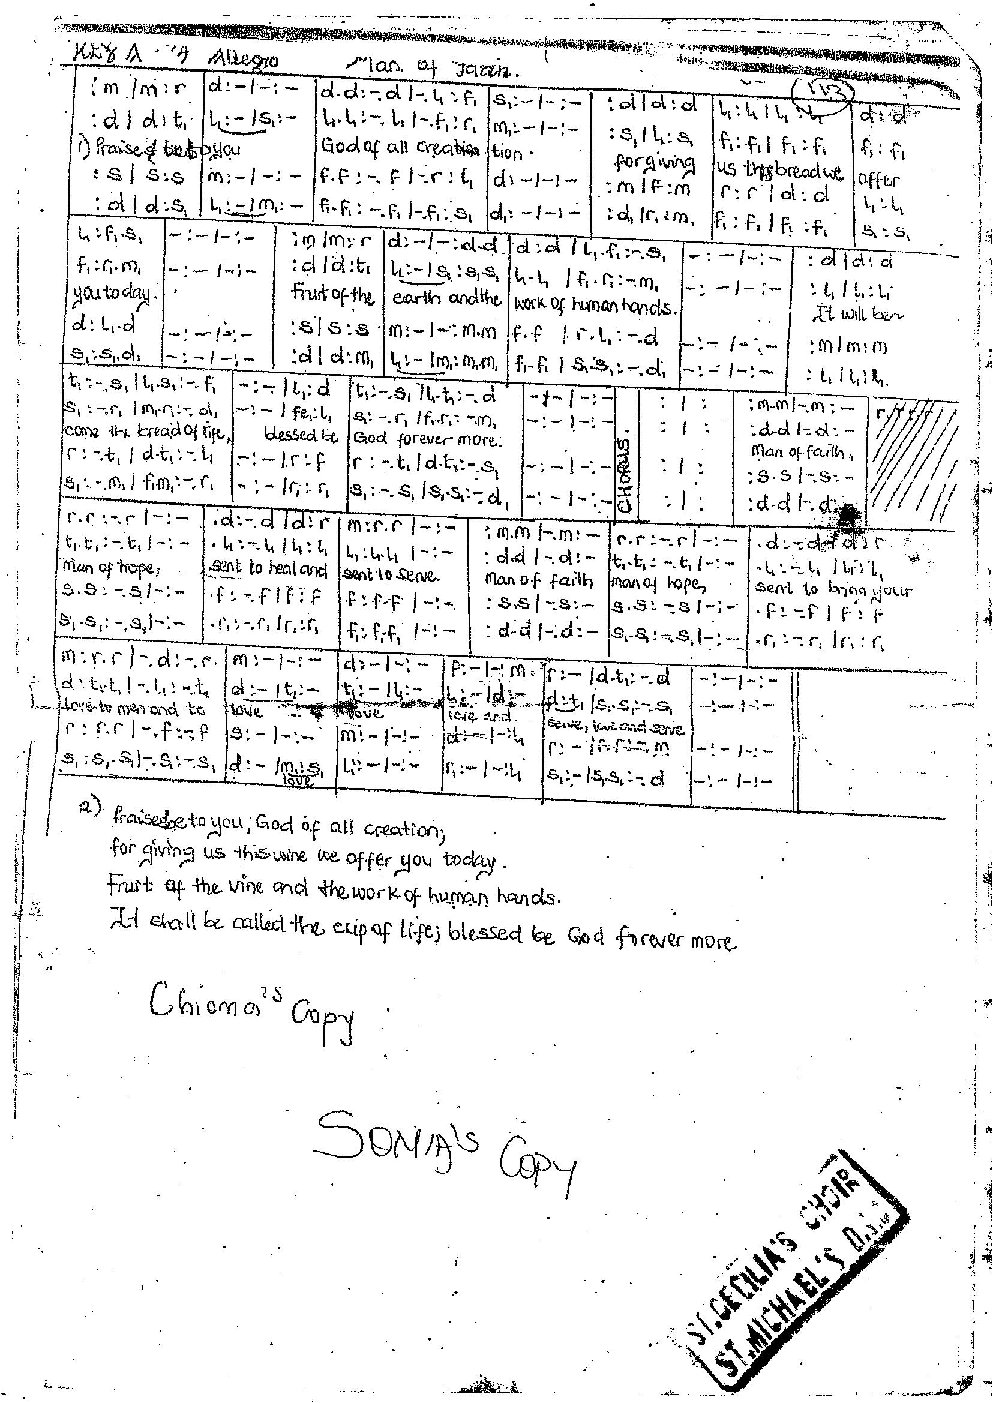 KEY A Allegro Man of Faith.
113
:m |m:r d:-|-:- d.d:-.d|-.l₁:f₁ s₁:-|-:- :d|d:d l₁:l₁|l₁:l₁ d:d
:d|d:t₁ l₁:-|s₁:- l₁.l₁:-.l₁|-.f₁:r₁ m₁:-|-:- :s₁|l₁:s₁ f₁:f₁|f₁:f₁ f₁:f₁
1) Praise be to you God of all creation tion. for giving us this bread we offer
:s|s:s m:-|-:- f.f:-.f|-.r:l₁ d:-|-:- :m|f:m r:r|d:d l₁:l₁
:d|d:s₁ l₁:-|m₁:- f₁.f₁:-.f₁|-.f₁:s₁ d₁:-|-:- :d₁|r₁:m₁ f₁:f₁|f₁:f₁ s₁:s₁
l₁:f₁.s₁ -:-|-:- :m|m:r d:-|-:d.d d:d|l₁.f₁:-.s₁ -:-|-:- :d|d:d
f₁:r₁.m₁ -:-|-:- :d|d:t₁ l₁:-|s₁:s₁.s₁ l₁.l₁|f₁.r₁:-.m₁ -:-|-:- :l₁|l₁:l₁
you today. Fruit of the earth and the work of human hands. It will be
d:l₁.d -:-|-:- :s|s:s m:-|-:m.m f.f|r.l₁:-.d -:-|-:- :m|m:m
s₁:s₁.d₁ -:-|-:- :d|d:m₁ l₁:-|m₁:m₁.m₁ f₁.f₁|s₁.s₁:-.d₁ -:-|-:- :l₁|l₁:l₁
t₁:-.s₁|l₁.s₁:-.f₁ -:-|l₁:d t₁:-.s₁|l₁.t₁:-.d -:-|-:- :|: :m.m|-.m:-
s₁:-.r₁|m₁.r₁:-.d₁ -:-|fe₁:l₁ s₁:-.r₁|f₁.r₁:-.m₁ -:-|-:- :|: :d.d|-.d:-
come the bread of life, blessed be God forever more. CHORUS. Man of faith,
r:-.t₁|d.t₁:-.l₁ -:-|r:f r:-.t₁|d.t₁:-.s₁ -:-|-:- :|: :s.s|-.s:-
s₁:-.m₁|f₁.m₁:-.r₁ -:-|r₁:r₁ s₁:-.s₁|s₁.s₁:-.d₁ -:-|-:- :|: :d.d|-.d:-
r.r:-.r|-:- .d:-.d|d:r m:r.r|-:- :m.m|-.m:- r.r:-.r|-:- .d:-.d|d:r
t₁.t₁:-.t₁|-:- .l₁:-.l₁|l₁:l₁ l₁:l₁.l₁|-:- :d.d|-.d:- t₁.t₁:-.t₁|-:- .l₁:-.l₁|l₁:l₁
Man of hope, sent to heal and sent to serve. Man of faith man of hope, sent to bring your
s.s:-.s|-:- .f:-.f|f:f f:f.f|-:- :s.s|-.s:- s.s:-.s|-:- .f:-.f|f:f
s₁.s₁:-.s₁|-:- .r₁:-.r₁|r₁:r₁ f₁:f₁.f₁|-:- :d.d|-.d:- s₁.s₁:-.s₁|-:- .r₁:-.r₁|r₁:r₁
m:r.r|-.d:-.r m:-|-:- d:-|-:- f:-|-:m r:-|d.t₁:-.d -:-|-:-
d:t₁.t₁|-.l₁:-.t₁ d:-|t₁:- t₁:-|l₁:- l₁:-|d:- d:t₁|s₁.s₁:-.s₁ -:-|-:-
love to men and to love love love and serve, love and serve
r:r.r|-.f:-.f s:-|-:- m:-|-:- d:-|-:l₁ r:-|f.f:-.m -:-|-:-
s₁:s₁.s₁|-.s₁:-.s₁ d:-|m₁:s₁ l₁:-|-:- r₁:-|-:l₁ s₁:-|s₁.s₁:-.d -:-|-:-
love
2) Praise be to you, God of all creation;
for giving us this wine we offer you today.
Fruit of the vine and the work of human hands.
It shall be called the cup of life; blessed be God forever more
Chioma's Copy
SONIA'S Copy
ST. CECILIA'S CHOIR
ST. MICHAEL'S